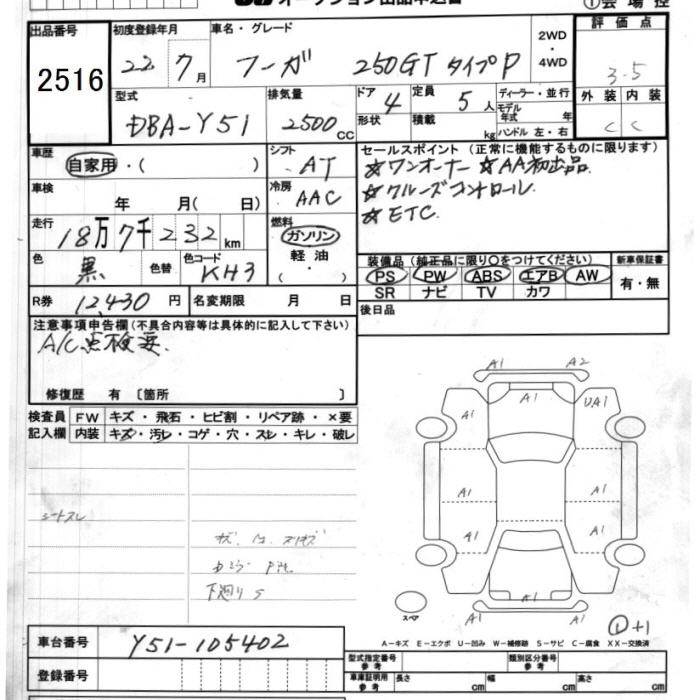 オークション出品申込書
①会場控
出品番号 2516
初度登録年月 22年 7月
車名・グレード フーガ 250GT タイプP
2WD・4WD
評価点 3.5
型式 DBA-Y51
排気量 2500cc
ドア形状 4
定員 5人
積載 kg
ディーラー・並行
モデル年式 年
ハンドル 左・右
外装 C
内装 C
車歴 自家用・( )
シフト AT
セールスポイント (正常に機能するものに限ります)
☆ワンオーナー ☆AA初出品
☆クルーズコントロール
☆ETC
車検 年 月( 日)
冷房 AAC
走行 18万7千232km
燃料 ガソリン 軽油
色 黒 色替
色コード KH3
装備品 (純正品に限り○をつけてください)
PS PW ABS エアB AW
SR ナビ TV カワ
新車保証書 有・無
R券 12,430円
名変期限 月 日
後日品
注意事項申告欄 (不具合内容等は具体的に記入して下さい)
A/C点検要
修復歴 有 〔箇所 〕
検査員記入欄
FW キズ・飛石・ヒビ割・リペア跡・×要
内装 キズ・汚レ・コゲ・穴・スレ・キレ・破レ
シートスレ
下廻りS
A1 A2
A1 A1 UA1
A1 A1
A1 A1
A1
A1
スペア
①+1
A-キズ E-エクボ U-凹み W-補修跡 S-サビ C-腐食 XX-交換済
車台番号 Y51-105402
登録番号
型式指定番号 参考
類別区分番号 参考
車庫証明用 参考 長さ cm 幅 cm 高さ cm